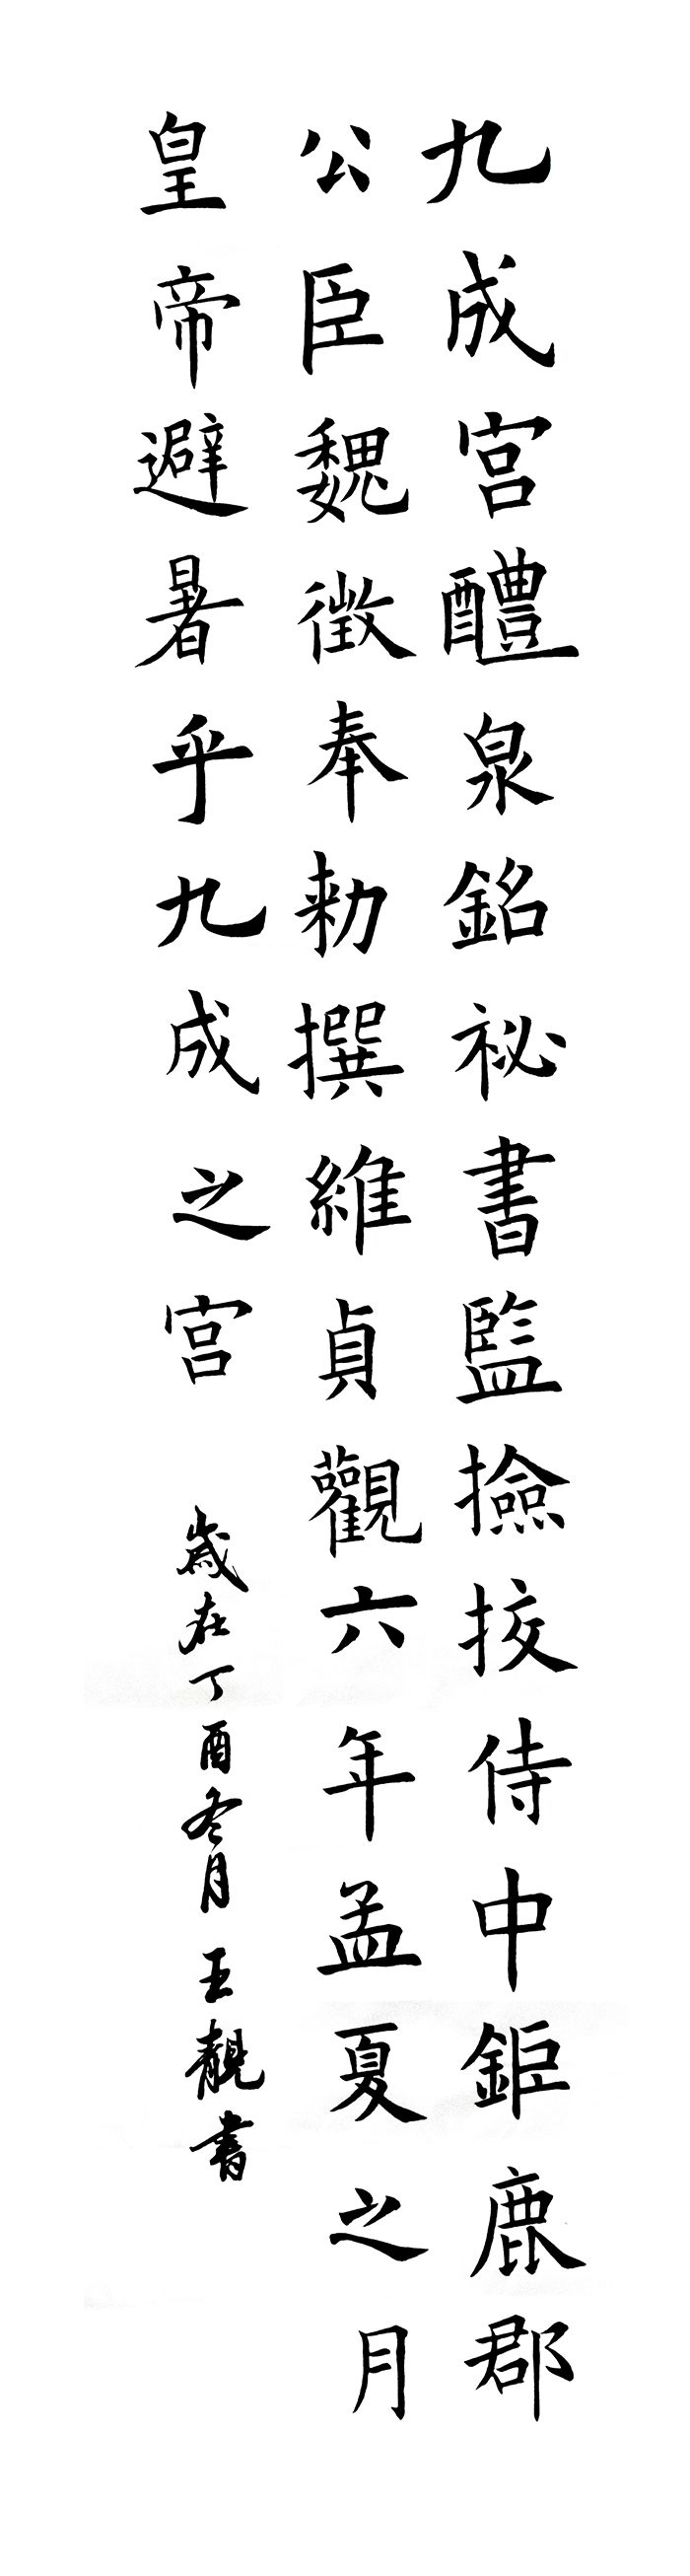 九成宮醴泉銘祕書監撿挍侍中鉅鹿郡
公臣魏徵奉勑撰維貞觀六年孟夏之月
皇帝避暑乎九成之宮
歲在丁酉冬月王靚書